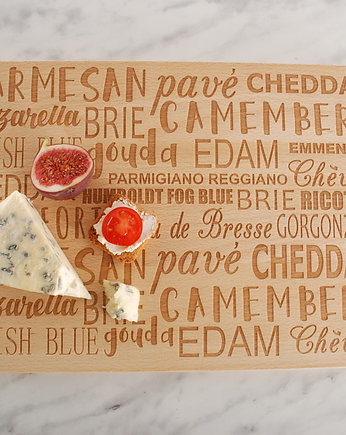 ARMESAN pavé CHEDDA
zarella BRIE CAMEMBE
ISH BLUE gouda EDAM EMMEN
EDE PARMIGIANO REGGIANO Chèv
HUMBOLDT FOG BLUE BRIE RICOT
FORT de Bresse GORGONZ
ESAN pavé CHEDD
zarella BRIE CAMEMBE
ISH BLUE gouda EDAM Chèv